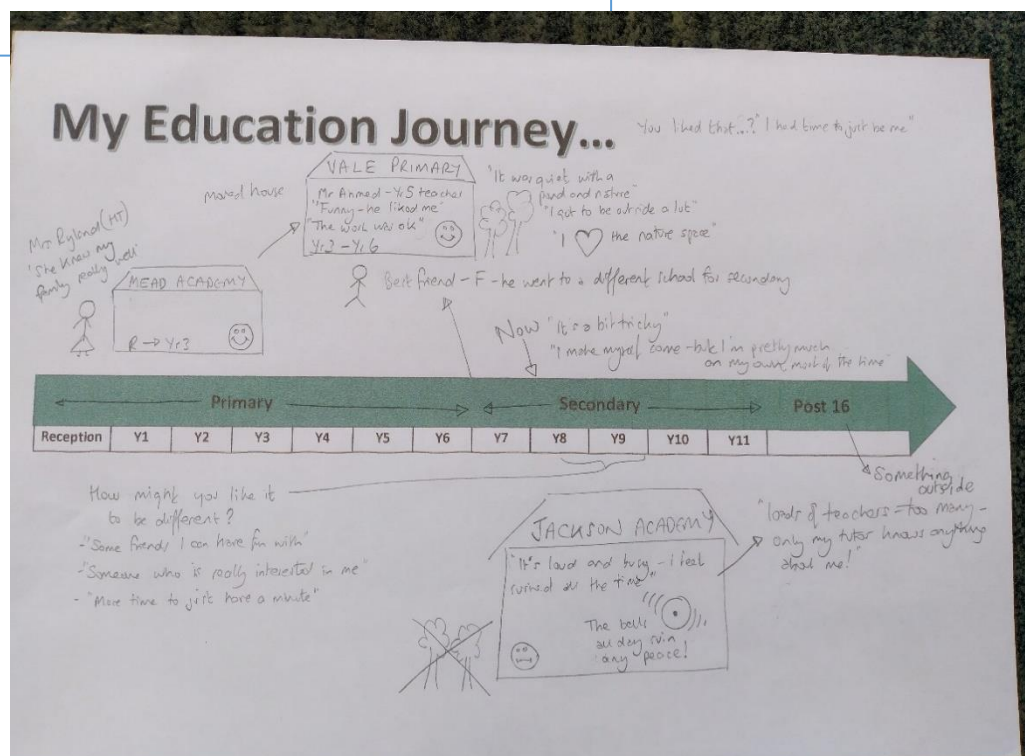 My Education Journey...
You liked that...? "I had time to just be me"
moved house
VALE PRIMARY
Mr Ahmed - Yr5 teacher
"Funny - he liked me"
"The work was ok"
Yr3 - Yr6
"It was quiet with a
pond and nature"
"I got to be outside a lot"
"I the nature space"
Mrs Ryland (HT)
"She knew my
family really well"
MEAD ACADEMY
R → Yr3
Best friend - F - he went to a different school for secondary
Now "It's a bit tricky"
"I make myself come - but I'm pretty much
on my own most of the time"
Primary
Secondary
Post 16
Reception Y1 Y2 Y3 Y4 Y5 Y6 Y7 Y8 Y9 Y10 Y11
How might you like it
to be different?
- "Some friends I can have fun with"
- "Someone who is really interested in me"
- "More time to just have a minute"
Something
outside
JACKSON ACADEMY
"It's loud and busy - i feel
rushed all the time"
The bells
all day ruin
any peace!
"loads of teachers = too many -
only my tutor knows anything
about me!"